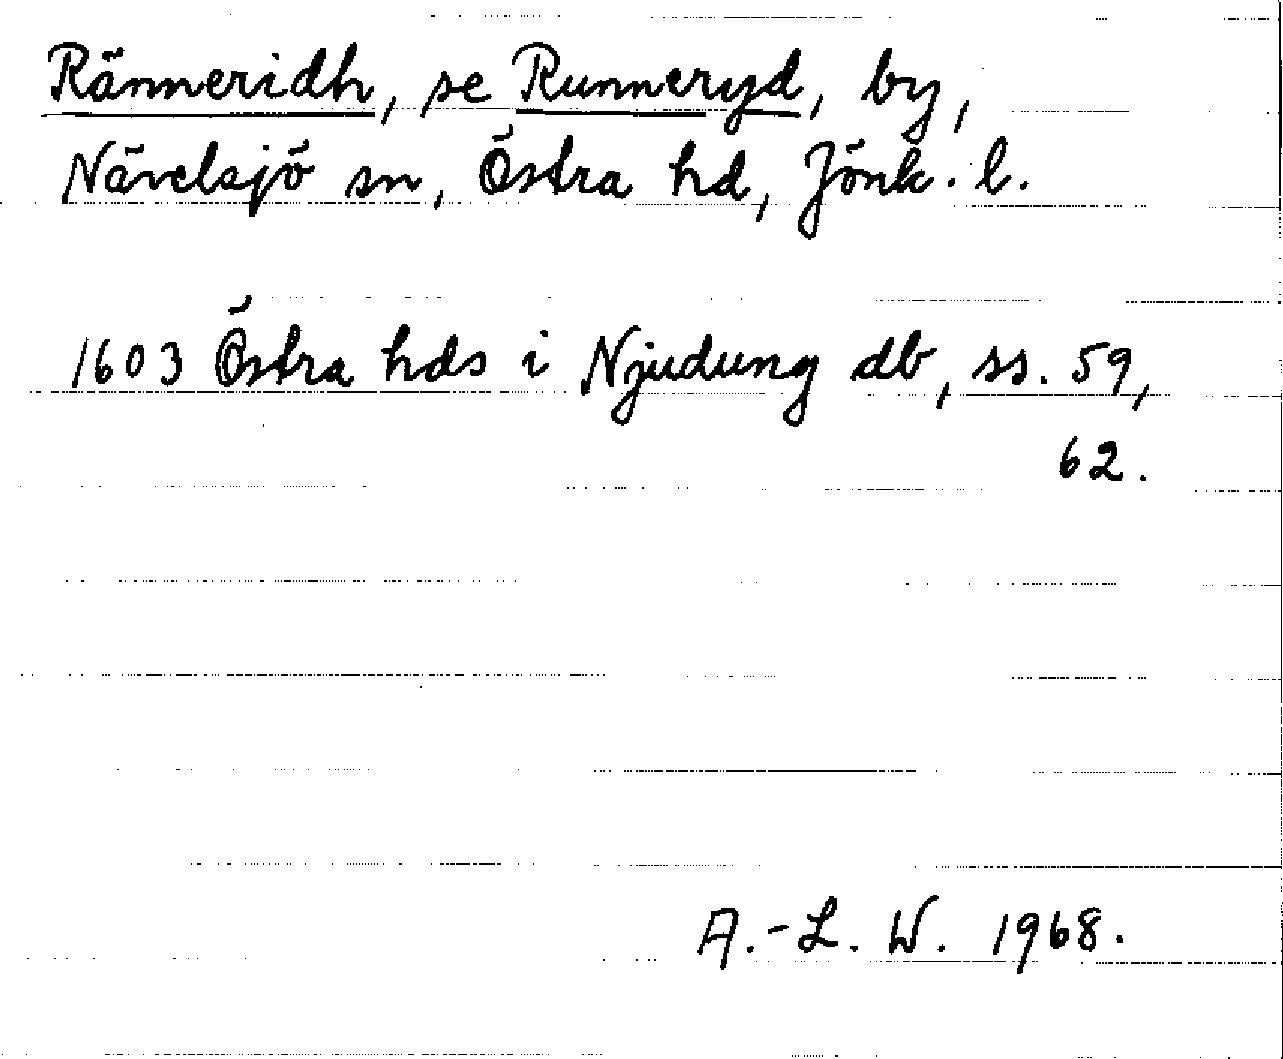 Ränneridh, se Runneryd, by,
Nävelsjö sn, Östra hd, Jönk. l.
1603 Östra hds i Njudung db, ss. 59,
62.
A.-L. W. 1968.